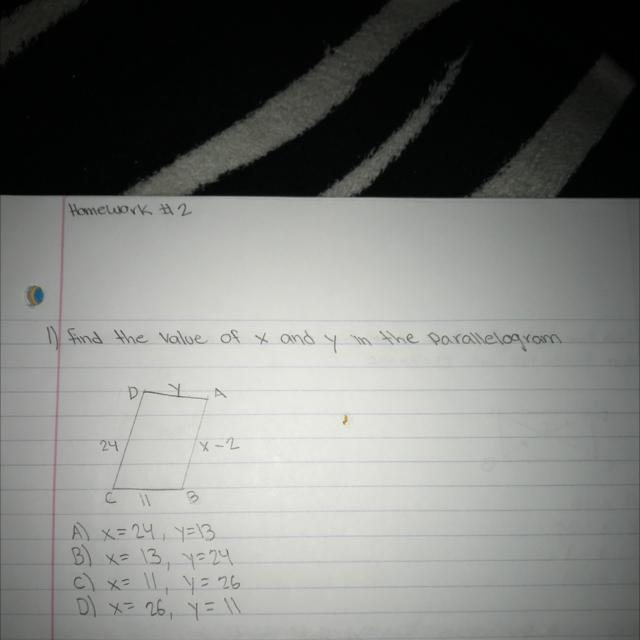 Homework #2
1) find the value of x and y in the parallelogram
D y A
24 x-2
C 11 B
A) x=24, y=13
B) x= 13, y=24
C) x= 11, y= 26
D) x= 26, y= 11